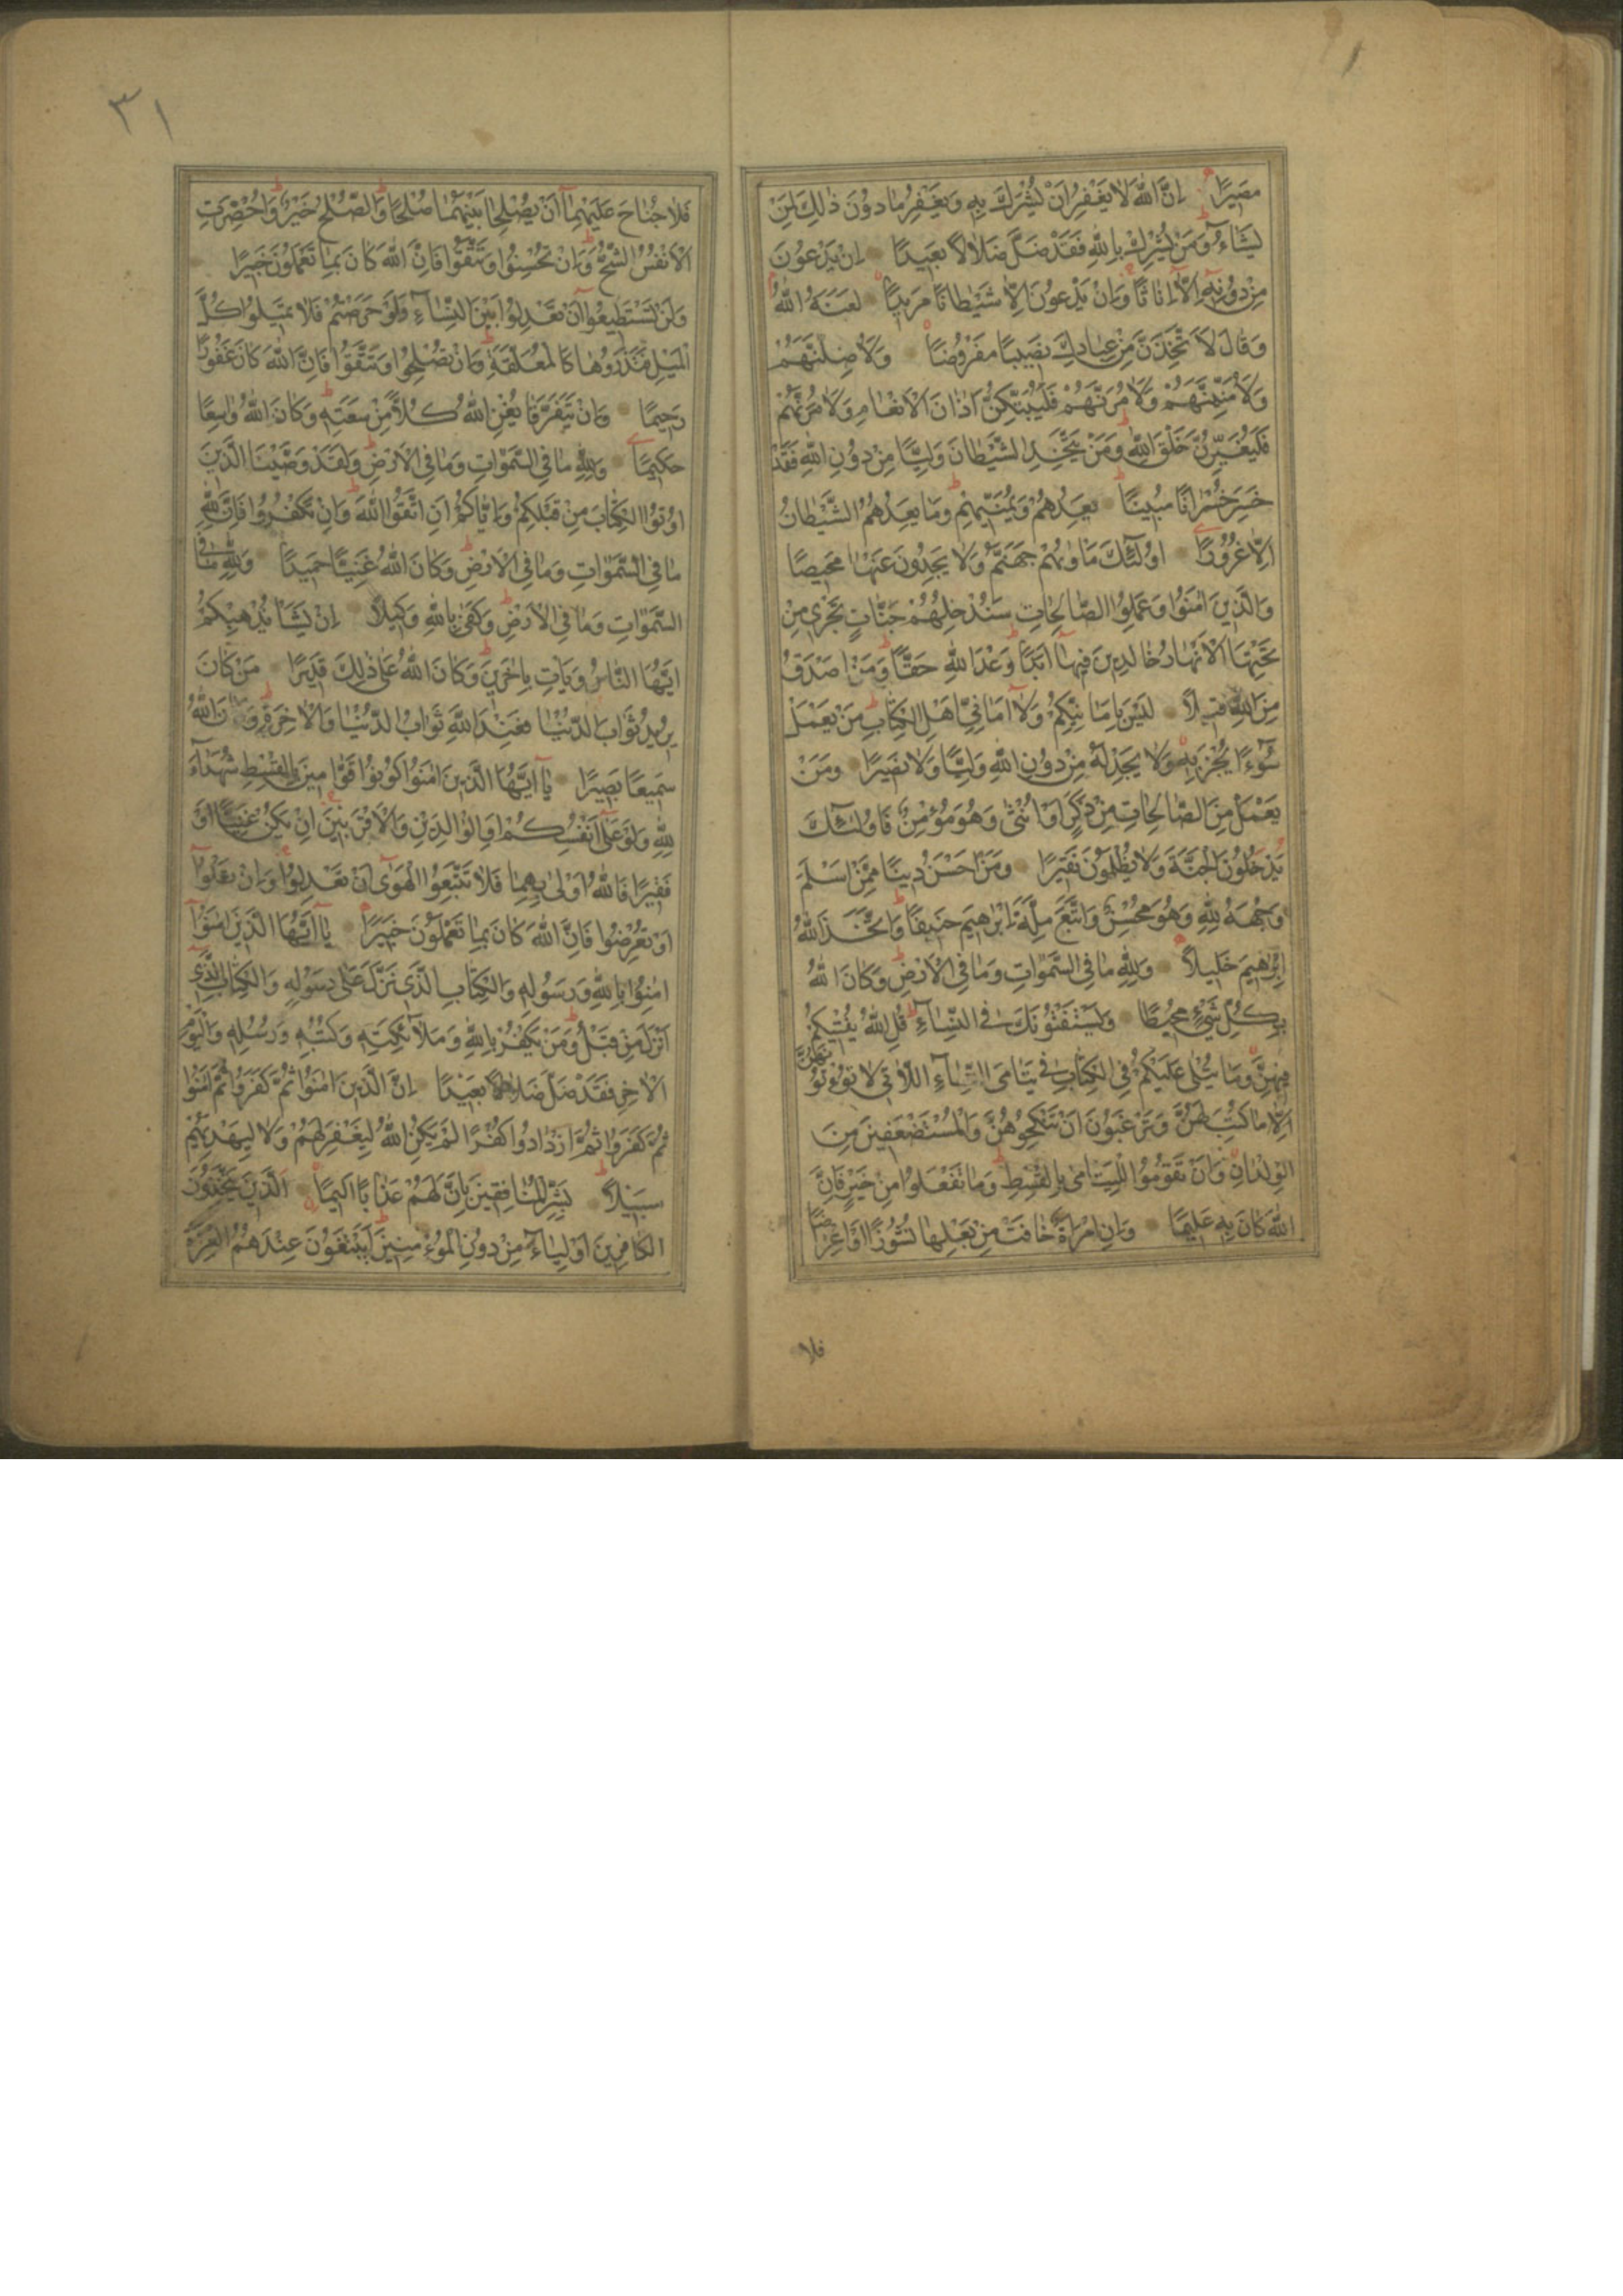 مَصِيرًا اِنَّ اللّٰهَ لَا يَغْفِرُ اَنْ يُشْرَكَ بِهِ وَيَغْفِرُ مَا دُونَ ذٰلِكَ لِمَنْ
يَشَاءُ وَمَنْ يُشْرِكْ بِاللّٰهِ فَقَدْ ضَلَّ ضَلَالًا بَعِيدًا اِنْ يَدْعُونَ
مِنْ دُونِهِ اِلَّا اِنَاثًا وَاِنْ يَدْعُونَ اِلَّا شَيْطَانًا مَرِيدًا لَعَنَهُ اللّٰهُ
وَقَالَ لَاَتَّخِذَنَّ مِنْ عِبَادِكَ نَصِيبًا مَفْرُوضًا وَلَاُضِلَّنَّهُمْ
وَلَاُمَنِّيَنَّهُمْ وَلَاٰمُرَنَّهُمْ فَلَيُبَتِّكُنَّ اٰذَانَ الْاَنْعَامِ وَلَاٰمُرَنَّهُمْ
فَلَيُغَيِّرُنَّ خَلْقَ اللّٰهِ وَمَنْ يَتَّخِذِ الشَّيْطَانَ وَلِيًّا مِنْ دُونِ اللّٰهِ فَقَدْ
خَسِرَ خُسْرَانًا مُبِينًا يَعِدُهُمْ وَيُمَنِّيهِمْ وَمَا يَعِدُهُمُ الشَّيْطَانُ
اِلَّا غُرُورًا اُولٰئِكَ مَاْوٰيهُمْ جَهَنَّمُ وَلَا يَجِدُونَ عَنْهَا مَحِيصًا
وَالَّذِينَ اٰمَنُوا وَعَمِلُوا الصَّالِحَاتِ سَنُدْخِلُهُمْ جَنَّاتٍ تَجْرِي مِنْ
تَحْتِهَا الْاَنْهَارُ خَالِدِينَ فِيهَا اَبَدًا وَعْدَ اللّٰهِ حَقًّا وَمَنْ اَصْدَقُ
مِنَ اللّٰهِ قِيلًا لَيْسَ بِاَمَانِيِّكُمْ وَلَا اَمَانِيِّ اَهْلِ الْكِتَابِ مَنْ يَعْمَلْ
سُوءًا يُجْزَ بِهِ وَلَا يَجِدْ لَهُ مِنْ دُونِ اللّٰهِ وَلِيًّا وَلَا نَصِيرًا وَمَنْ
يَعْمَلْ مِنَ الصَّالِحَاتِ مِنْ ذَكَرٍ اَوْ اُنْثٰى وَهُوَ مُؤْمِنٌ فَاُولٰئِكَ
يَدْخُلُونَ الْجَنَّةَ وَلَا يُظْلَمُونَ نَقِيرًا وَمَنْ اَحْسَنُ دِينًا مِمَّنْ اَسْلَمَ
وَجْهَهُ لِلّٰهِ وَهُوَ مُحْسِنٌ وَاتَّبَعَ مِلَّةَ اِبْرٰهِيمَ حَنِيفًا وَاتَّخَذَ اللّٰهُ
اِبْرٰهِيمَ خَلِيلًا وَلِلّٰهِ مَا فِي السَّمٰوَاتِ وَمَا فِي الْاَرْضِ وَكَانَ اللّٰهُ
بِكُلِّ شَيْءٍ مُحِيطًا وَيَسْتَفْتُونَكَ فِي النِّسَاءِ قُلِ اللّٰهُ يُفْتِيكُمْ
فِيهِنَّ وَمَا يُتْلٰى عَلَيْكُمْ فِي الْكِتَابِ فِي يَتَامَى النِّسَاءِ اللَّاتِي لَا تُؤْتُونَهُنَّ
اِلَّا مَا كُتِبَ لَهُنَّ وَتَرْغَبُونَ اَنْ تَنْكِحُوهُنَّ وَالْمُسْتَضْعَفِينَ مِنَ
الْوِلْدَانِ وَاَنْ تَقُومُوا لِلْيَتَامٰى بِالْقِسْطِ وَمَا تَفْعَلُوا مِنْ خَيْرٍ فَاِنَّ
اللّٰهَ كَانَ بِهِ عَلِيمًا وَاِنِ امْرَاَةٌ خَافَتْ مِنْ بَعْلِهَا نُشُوزًا اَوْ اِعْرَاضًا
فلا
٣١
فَلَا جُنَاحَ عَلَيْهِمَا اَنْ يُصْلِحَا بَيْنَهُمَا صُلْحًا وَالصُّلْحُ خَيْرٌ وَاُحْضِرَتِ
الْاَنْفُسُ الشُّحَّ وَاِنْ تُحْسِنُوا وَتَتَّقُوا فَاِنَّ اللّٰهَ كَانَ بِمَا تَعْمَلُونَ خَبِيرًا
وَلَنْ تَسْتَطِيعُوا اَنْ تَعْدِلُوا بَيْنَ النِّسَاءِ وَلَوْ حَرَصْتُمْ فَلَا تَمِيلُوا كُلَّ
الْمَيْلِ فَتَذَرُوهَا كَالْمُعَلَّقَةِ وَاِنْ تُصْلِحُوا وَتَتَّقُوا فَاِنَّ اللّٰهَ كَانَ غَفُورًا
رَحِيمًا وَاِنْ يَتَفَرَّقَا يُغْنِ اللّٰهُ كُلًّا مِنْ سَعَتِهِ وَكَانَ اللّٰهُ وَاسِعًا
حَكِيمًا وَلِلّٰهِ مَا فِي السَّمٰوَاتِ وَمَا فِي الْاَرْضِ وَلَقَدْ وَصَّيْنَا الَّذِينَ
اُوتُوا الْكِتَابَ مِنْ قَبْلِكُمْ وَاِيَّاكُمْ اَنِ اتَّقُوا اللّٰهَ وَاِنْ تَكْفُرُوا فَاِنَّ لِلّٰهِ
مَا فِي السَّمٰوَاتِ وَمَا فِي الْاَرْضِ وَكَانَ اللّٰهُ غَنِيًّا حَمِيدًا وَلِلّٰهِ مَا فِي
السَّمٰوَاتِ وَمَا فِي الْاَرْضِ وَكَفٰى بِاللّٰهِ وَكِيلًا اِنْ يَشَاْ يُذْهِبْكُمْ
اَيُّهَا النَّاسُ وَيَاْتِ بِاٰخَرِينَ وَكَانَ اللّٰهُ عَلٰى ذٰلِكَ قَدِيرًا مَنْ كَانَ
يُرِيدُ ثَوَابَ الدُّنْيَا فَعِنْدَ اللّٰهِ ثَوَابُ الدُّنْيَا وَالْاٰخِرَةِ وَكَانَ اللّٰهُ
سَمِيعًا بَصِيرًا يَا اَيُّهَا الَّذِينَ اٰمَنُوا كُونُوا قَوَّامِينَ بِالْقِسْطِ شُهَدَاءَ
لِلّٰهِ وَلَوْ عَلٰى اَنْفُسِكُمْ اَوِ الْوَالِدَيْنِ وَالْاَقْرَبِينَ اِنْ يَكُنْ غَنِيًّا اَوْ
فَقِيرًا فَاللّٰهُ اَوْلٰى بِهِمَا فَلَا تَتَّبِعُوا الْهَوٰى اَنْ تَعْدِلُوا وَاِنْ تَلْوُوا
اَوْ تُعْرِضُوا فَاِنَّ اللّٰهَ كَانَ بِمَا تَعْمَلُونَ خَبِيرًا يَا اَيُّهَا الَّذِينَ اٰمَنُوا
اٰمِنُوا بِاللّٰهِ وَرَسُولِهِ وَالْكِتَابِ الَّذِي نَزَّلَ عَلٰى رَسُولِهِ وَالْكِتَابِ الَّذِي
اَنْزَلَ مِنْ قَبْلُ وَمَنْ يَكْفُرْ بِاللّٰهِ وَمَلَائِكَتِهِ وَكُتُبِهِ وَرُسُلِهِ وَالْيَوْمِ
الْاٰخِرِ فَقَدْ ضَلَّ ضَلَالًا بَعِيدًا اِنَّ الَّذِينَ اٰمَنُوا ثُمَّ كَفَرُوا ثُمَّ اٰمَنُوا
ثُمَّ كَفَرُوا ثُمَّ ازْدَادُوا كُفْرًا لَمْ يَكُنِ اللّٰهُ لِيَغْفِرَ لَهُمْ وَلَا لِيَهْدِيَهُمْ
سَبِيلًا بَشِّرِ الْمُنَافِقِينَ بِاَنَّ لَهُمْ عَذَابًا اَلِيمًا اَلَّذِينَ يَتَّخِذُونَ
الْكَافِرِينَ اَوْلِيَاءَ مِنْ دُونِ الْمُؤْمِنِينَ اَيَبْتَغُونَ عِنْدَهُمُ الْعِزَّةَ